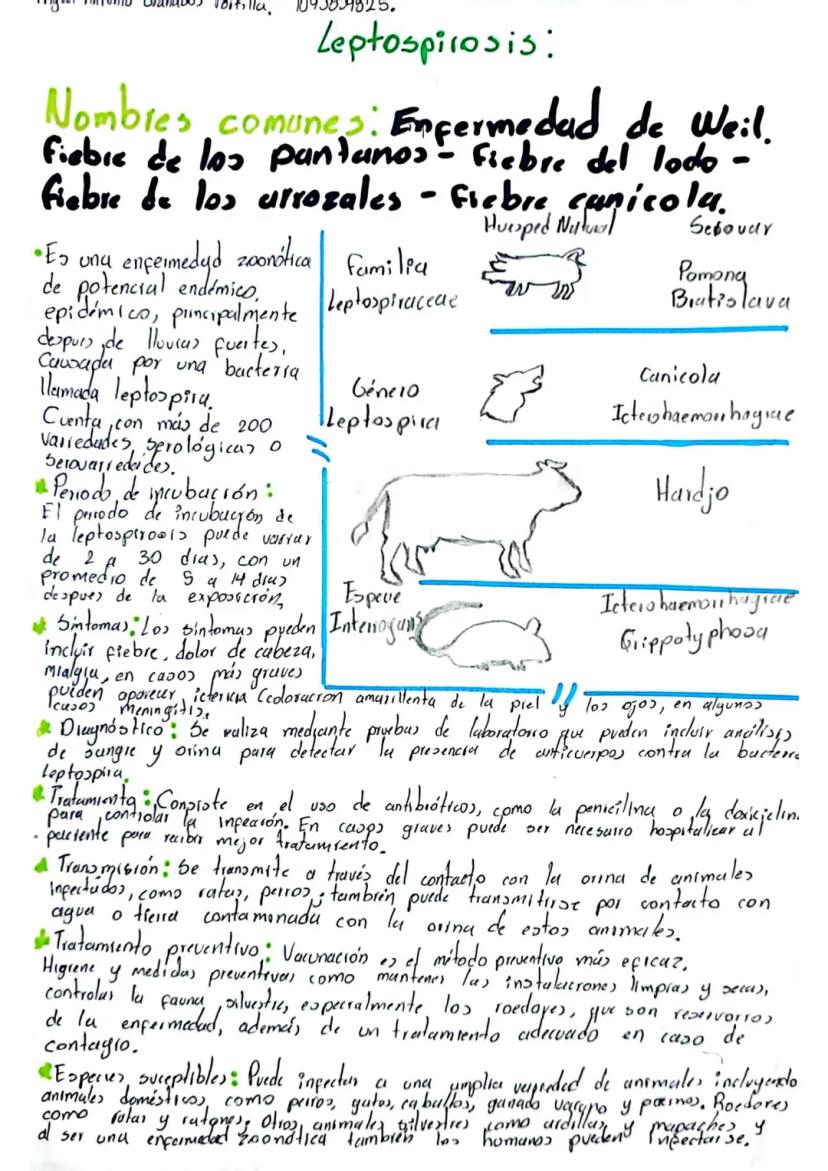 109... 9825.
Leptospirosis:
Nombres comunes: Enfermedad de Weil.
fiebre de los pantanos - fiebre del lodo -
fiebre de los arrozales - fiebre canícola.
Huesped Natural Serovar
• Es una enfermedad zoonótica
de potencial endémico,
epidémico, principalmente
despues de lluvias fuertes,
Causada por una bacteria
llamada leptospira.
Cuenta con más de 200
variedades serológicas o
serovarriedades.
Periodo de incubación:
El periodo de incubación de
la leptospirosis puede variar
de 2 a 30 dias, con un
promedio de 5 a 14 dias
despues de la exposición,
Síntomas: Los síntomas pueden
incluir fiebre, dolor de cabeza,
mialgia, en casos más graves
pueden aparecer ictericia (coloracion amarillenta de la piel y los ojos, en algunos
casos meningitis.
Familia
Leptospiraceae
Pomona
Bratislava
Género
Leptospira
Canicola
Icterohaemorrhagiae
Hardjo
Especie
Interrogans
Icterohaemorrhagiae
Grippotyphosa
Diagnóstico: Se realiza mediante pruebas de laboratorio que pueden incluir análisis
de sangre y orina para detectar la presencia de anticuerpos contra la bacteria
leptospira.
Tratamiento: Consiste en el uso de antibióticos, como la penicilina o la doxiciclin.
para controlar la infección. En casos graves puede ser necesario hospitalizar al
paciente para recibir mejor tratamiento.
Transmisión: Se transmite a través del contacto con la orina de animales
infectados, como ratas, perros; también puede transmitirse por contacto con
agua o tierra contamonada con la orina de estos animales.
Tratamiento preventivo: Vacunación es el método preventivo más eficaz.
Higiene y medidas preventivas como mantener las instalaciones limpias y secas,
controlar la fauna silvestre, especialmente los roedores, que son reservorios
de la enfermedad, además de un tratamiento adecuado en caso de
contagio.
Especies suceptibles: Puede infectar a una amplia variedad de animales incluyendo
animales domésticos, como perros, gatos, caballos, ganado vacuno y porcinos. Roedores
como ratas y ratones; Otros animales silvestres como ardillas y mapaches y
al ser una enfermedad zoonótica también los humanos pueden infectarse.